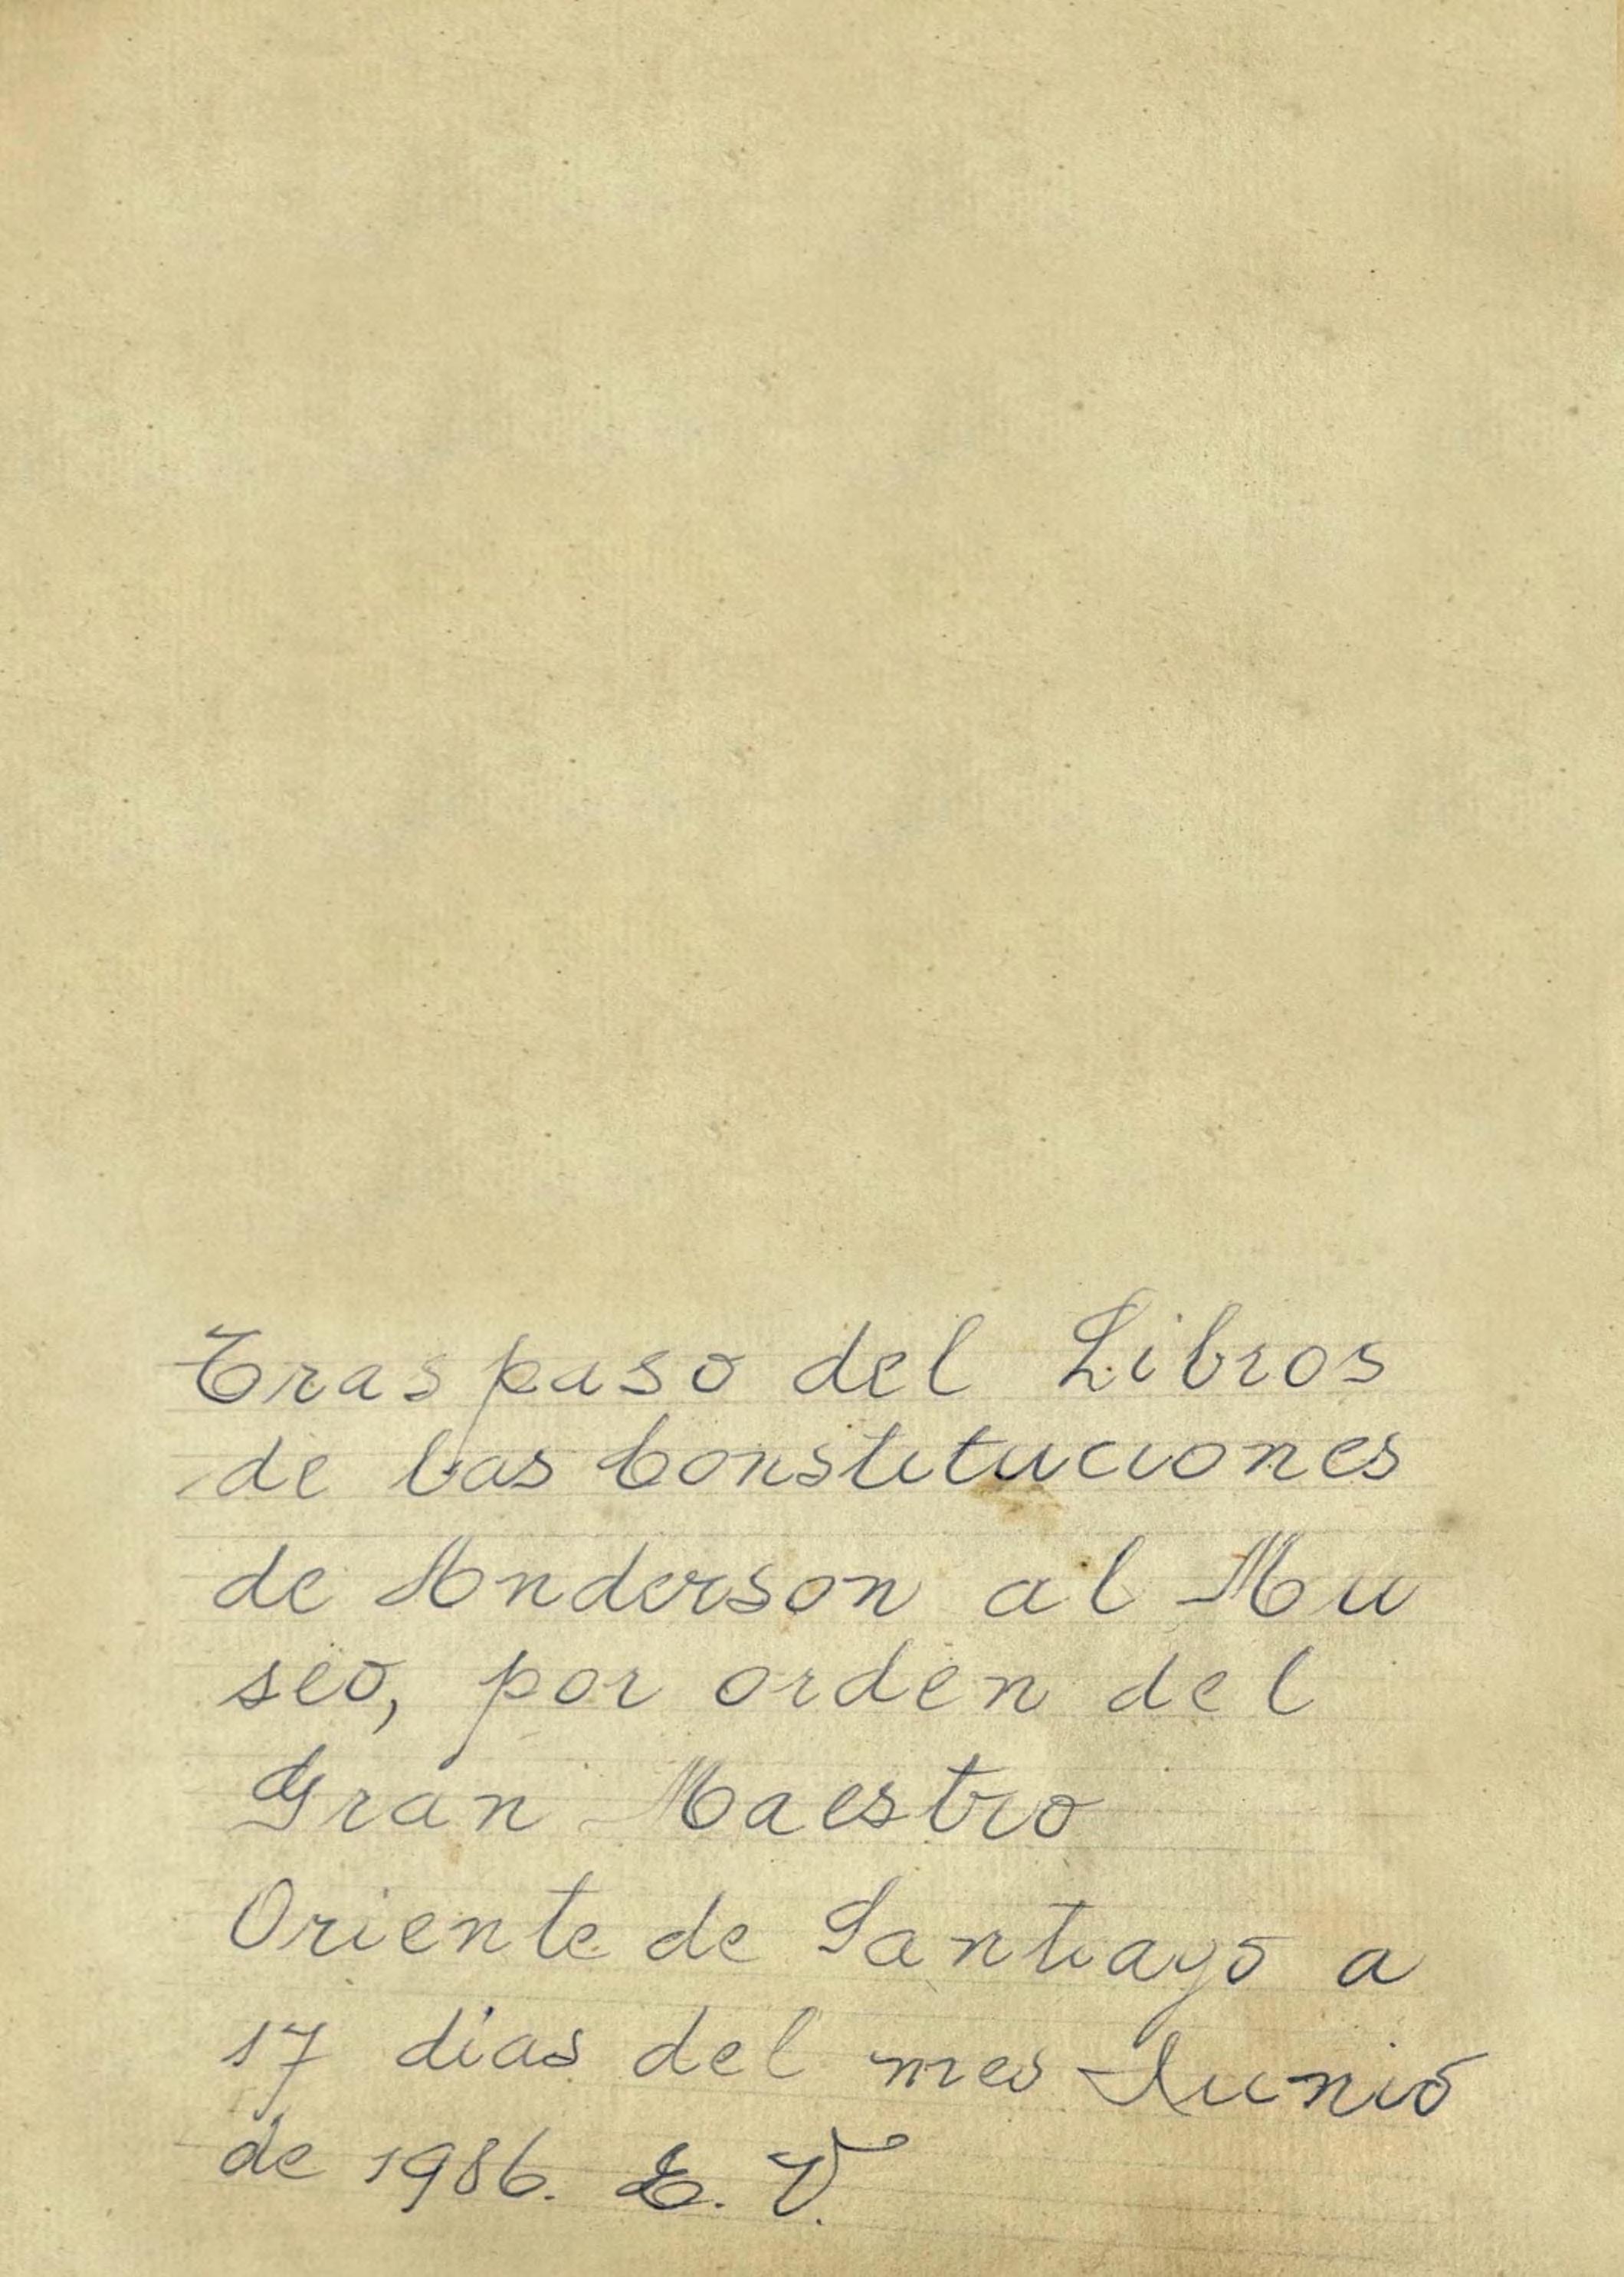 Traspaso del Libros
de las Constituciones
de Anderson al Mu
seo, por orden del
Gran Maestro
Oriente de Santiago a
17 dias del mes Junio
de 1986. E. V.